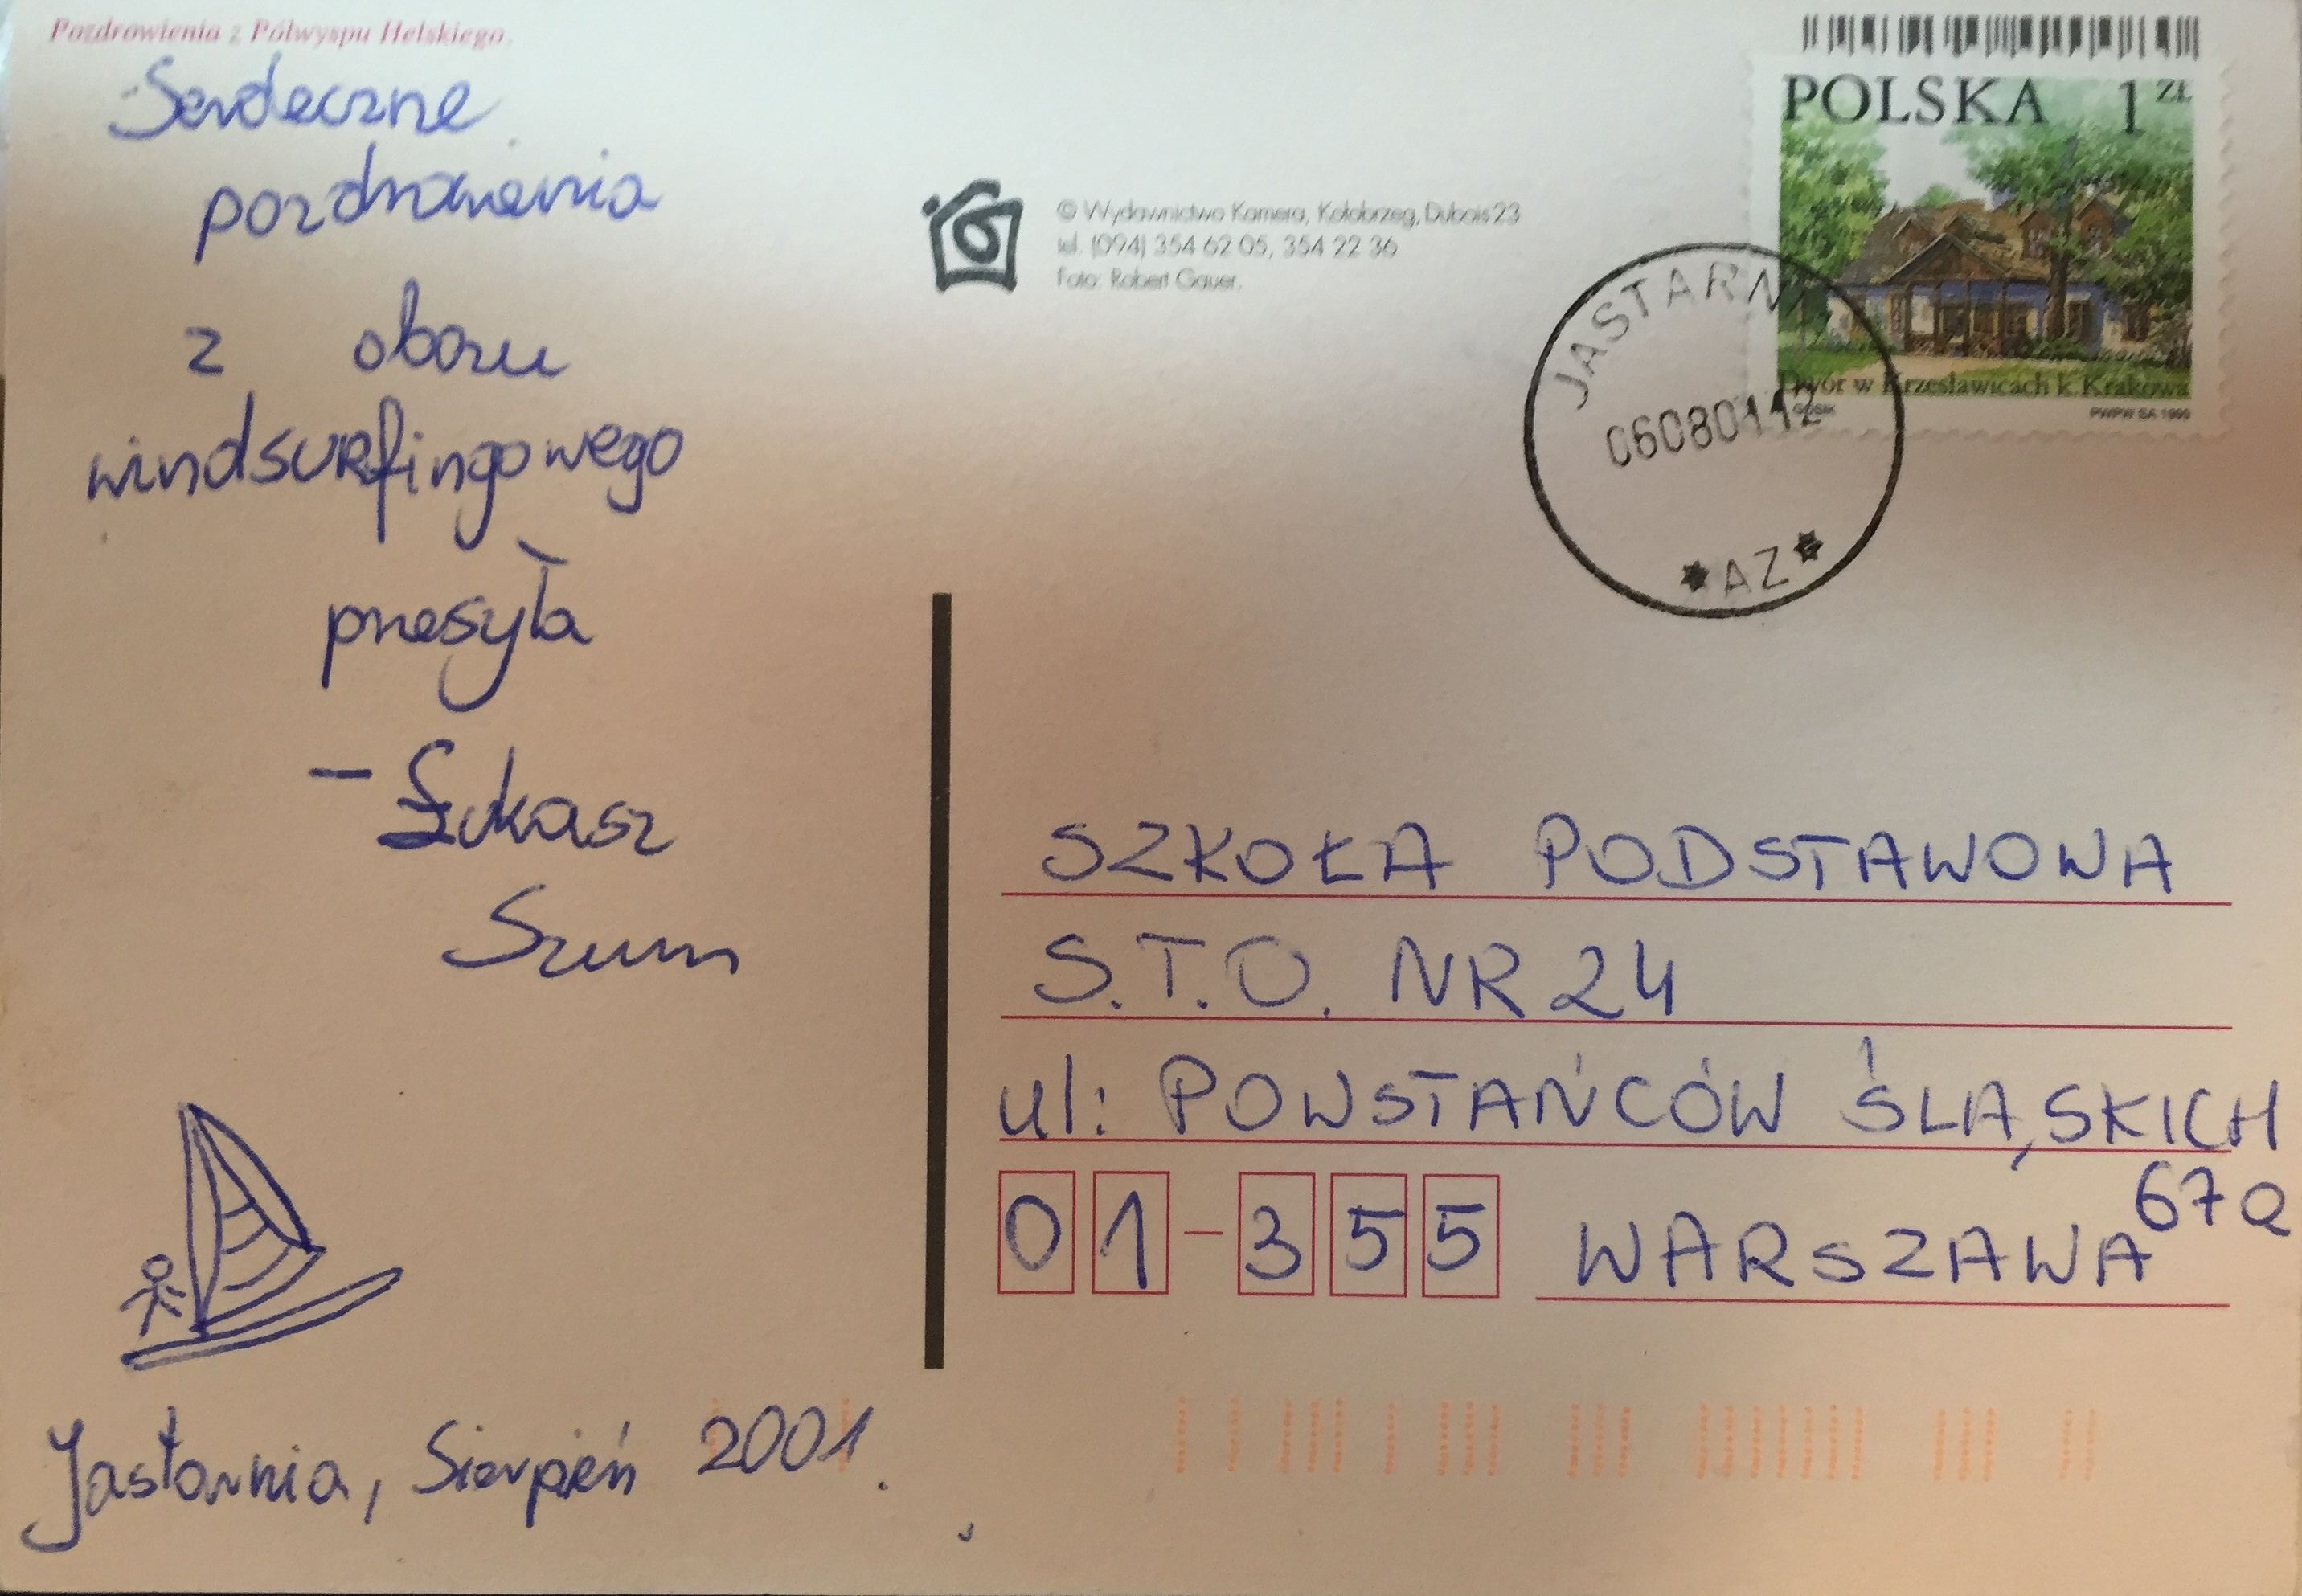 Pozdrowienia z Półwyspu Helskiego.
Serdeczne
pozdrowienia
z obozu
windsurfingowego
przesyła
– Łukasz
Szum
Jastarnia, Sierpień 2001.
© Wydawnictwo Kamera, Kołobrzeg, Dubois 23
tel. (094) 354 62 05, 354 22 36
Foto: Robert Gauer.
POLSKA 1 ZŁ
Dwór w Krzesławicach k. Krakowa
PWPW SA 1999
JASTARNIA
06080112
*AZ*
SZKOŁA PODSTAWOWA
S.T.O. NR 24
ul: POWSTAŃCÓW ŚLĄSKICH
67a
01-355 WARSZAWA